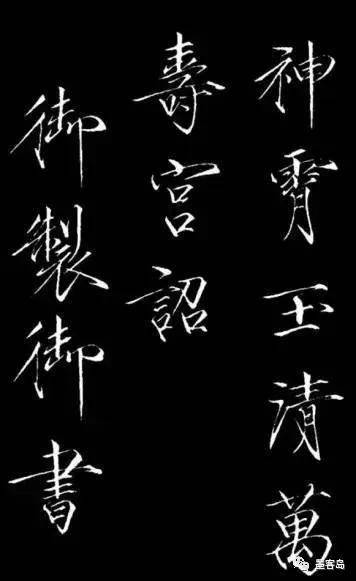 神霄玉清萬
壽宮詔
御製御書
墨客岛